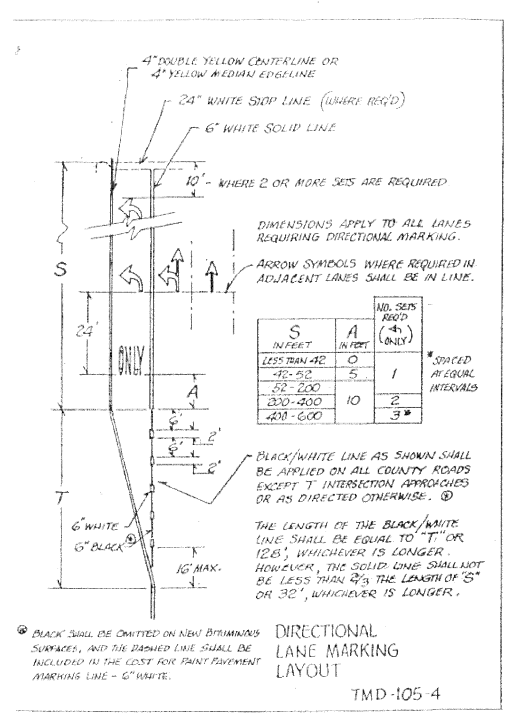 4" DOUBLE YELLOW CENTERLINE OR
4" YELLOW MEDIAN EDGELINE
24" WHITE STOP LINE (WHERE REQ'D)
6" WHITE SOLID LINE
10' - WHERE 2 OR MORE SETS ARE REQUIRED
DIMENSIONS APPLY TO ALL LANES
REQUIRING DIRECTIONAL MARKING.
S
ARROW SYMBOLS WHERE REQUIRED IN
ADJACENT LANES SHALL BE IN LINE.
24'
ONLY
A
S
IN FEET
A
IN FEET
NO. SETS
REQ'D
ONLY
LESS THAN 42 0
42-52 5 1
52-200
200-400 10 2
400-600 3*
* SPACED
AT EQUAL
INTERVALS
6'
2'
6'
2'
T
BLACK/WHITE LINE AS SHOWN SHALL
BE APPLIED ON ALL COUNTY ROADS
EXCEPT T INTERSECTION APPROACHES
OR AS DIRECTED OTHERWISE.
6" WHITE
6" BLACK
16' MAX.
THE LENGTH OF THE BLACK/WHITE
LINE SHALL BE EQUAL TO "T," OR
128', WHICHEVER IS LONGER.
HOWEVER, THE SOLID LINE SHALL NOT
BE LESS THAN 2/3 THE LENGTH OF "S"
OR 32', WHICHEVER IS LONGER.
BLACK SHALL BE OMITTED ON NEW BITUMINOUS
SURFACES, AND THE DASHED LINE SHALL BE
INCLUDED IN THE COST FOR PAINT PAVEMENT
MARKING LINE - 6" WHITE.
DIRECTIONAL
LANE MARKING
LAYOUT
TMD-105-4